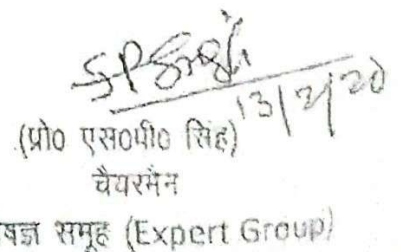 SPSingh
13/2/20
(प्रो० एस०पी० सिंह)
चैयरमैन
षज्ञ समूह (Expert Group)